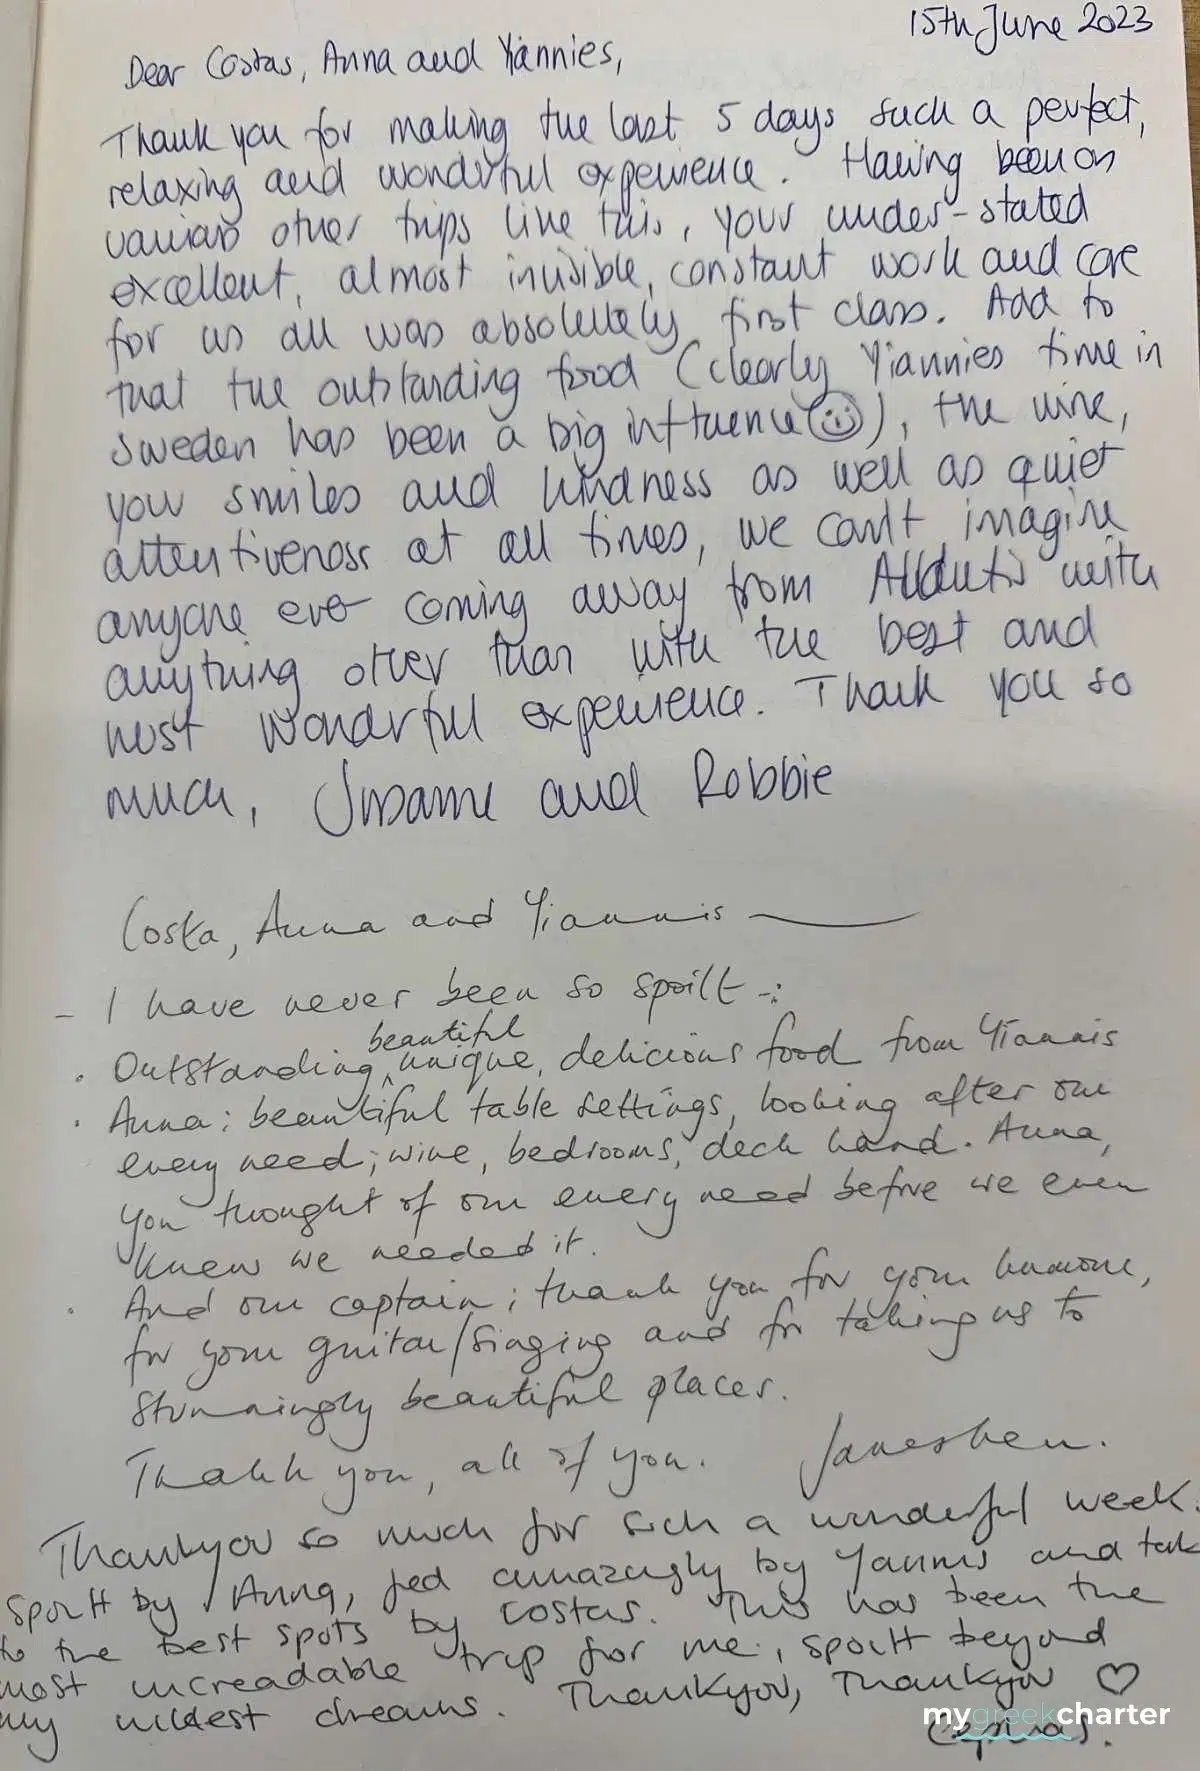 15th June 2023
Dear Costas, Anna and Yiannies,
Thank you for making the last 5 days such a perfect,
relaxing and wonderful experience. Having been on
various other trips like this, your under-stated
excellent, almost invisible, constant work and care
for us all was absolutely first class. Add to
that the outstanding food (clearly Yiannies time in
Sweden has been a big influence ☺), the wine,
your smiles and kindness as well as quiet
attentiveness at all times, we can't imagine
anyone ever coming away from with
anything other than with the best and
most wonderful experience. Thank you so
much, and Robbie
Costa, Anna and Yiannis
- I have never been so spoilt -:
beautiful
. Outstanding, unique, delicious food from Yiannis
. Anna: beautiful table settings, looking after our
every need; wine, bedrooms, deck hand. Anna,
you thought of our every need before we even
knew we needed it.
. And our captain; thank you for your humour,
for your guitar/singing and for taking us to
stunningly beautiful places.
Thank you, all of you.
Thankyou so much for such a wonderful week.
Spoilt by Anna, fed amazingly by Yannis and tak
to the best spots by Costas. This has been the
most increadable trip for me, spoilt beyond
my wildest dreams. Thankyou, Thankyou ♡
mygreekcharter